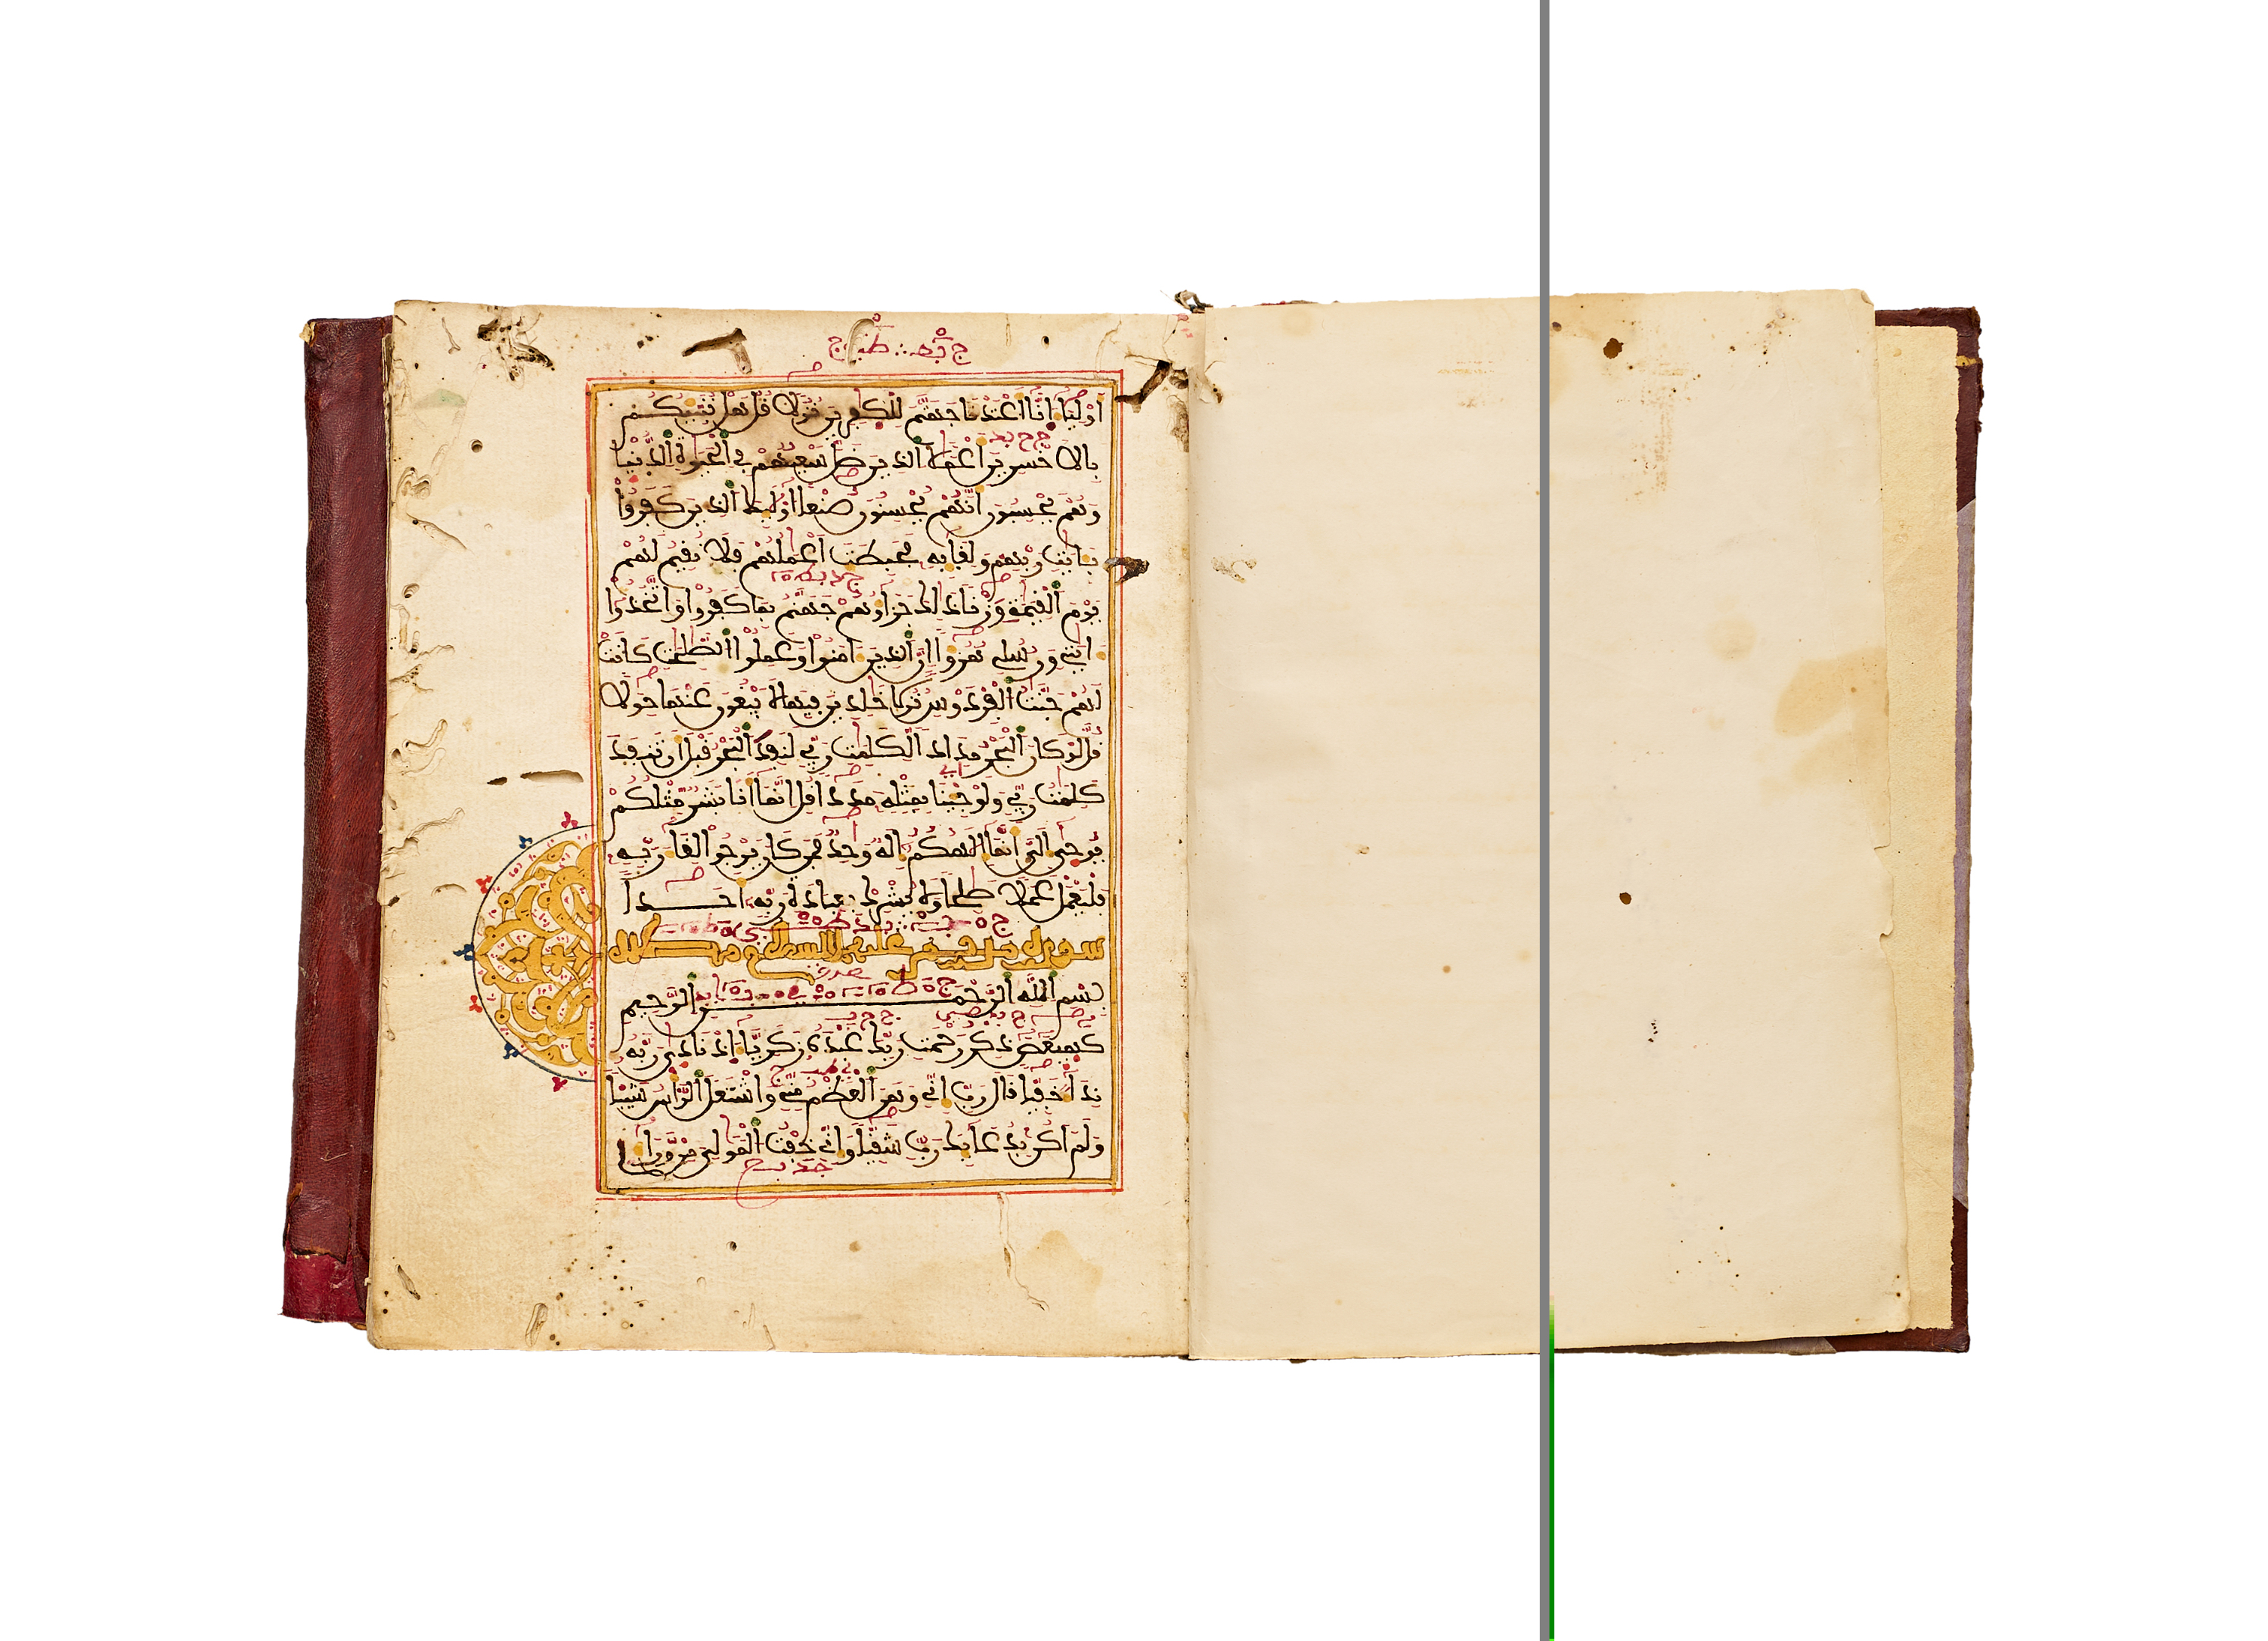 أولياء انا أعتدنا جهنم للكفرين نزلا قل هل ننبيكم
بالاخسرين أعملا الذين ضل سعيهم في الحيوة الدنيا
وهم يحسبون أنهم يحسنون صنعا اوليك الذين كفروا
بايت ربهم ولقايه فحبطت أعملهم فلا نقيم لهم
يوم القيمة وزنا ذلك جزاوهم جهنم بما كفروا واتخذوا
ايتي ورسلي هزوا ان الذين امنوا وعملوا الصلحت كانت
لهم جنت الفردوس نزلا خلدين فيها لا يبغون عنها حولا
قل لو كان البحر مدادا لكلمت ربي لنفد البحر قبل ان تنفد
كلمت ربي ولو جينا بمثله مددا قل انما انا بشر مثلكم
يوحى الي انما الهكم اله وحد فمن كان يرجوا لقاء ربه
فليعمل عملا صلحا ولا يشرك بعبادة ربه احدا
سورة مريم عليها السلام مكية
بسم الله الرحمن الرحيم
كهيعص ذكر رحمت ربك عبده زكرياء اذ نادى ربه
نداء خفيا قال رب اني وهن العظم مني واشتعل الرأس شيبا
ولم اكن بدعايك رب شقيا واني خفت المولي من وراءي